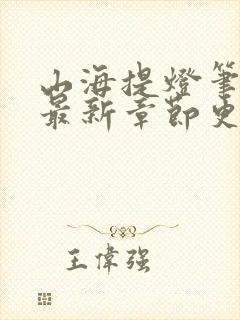 山海提燈筆
最新章節史
王偉強